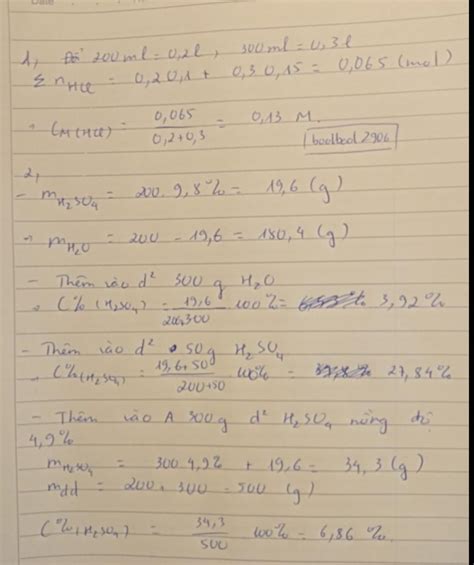 1, Đổi 200ml = 0,2l, 300ml = 0,3l
Σ nHCl = 0,2.0,1 + 0,3.0,15 = 0,065 (mol)
→ CM(HCl) = 0,065 / 0,2+0,3 = 0,13 M.
boolbool2906
2,
- mH2SO4 = 200.9,8% = 19,6 (g)
→ mH2O = 200 - 19,6 = 180,4 (g)
- Thêm vào d² 300 g H2O
→ C%(H2SO4) = 19,6 / 200+300 .100% = 3,92%
- Thêm vào d² 50g H2SO4
→ C%(H2SO4) = 19,6+50 / 200+50 .100% = 27,84%
- Thêm vào A 300g d² H2SO4 nồng độ
4,9%
mH2SO4 = 300.4,9% + 19,6 = 34,3 (g)
mdd = 200 + 300 = 500 (g)
C%(H2SO4) = 34,3 / 500 .100% = 6,86 %.